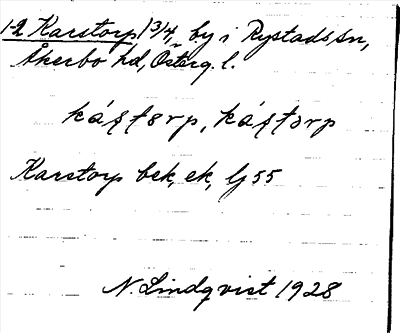 1-2 Karstorp 1 3/4, by i Rystads sn,
Åkerbo hd, Österg. l.
káʂtorp, káʂtorp
Karstorp bek, ek, lj 55
N. Lindqvist 1928